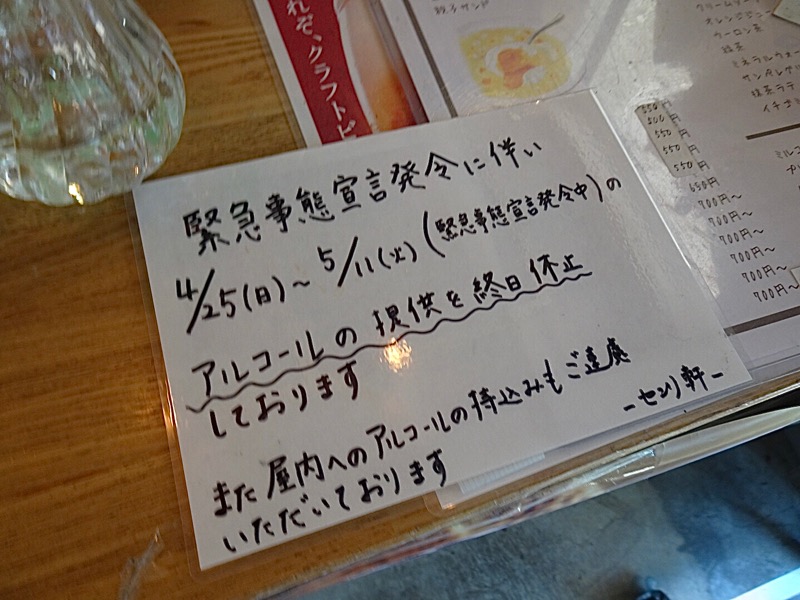 れぞ、クラフトビ
餃子サンド
クリームソーダ
オレンジジュース
ウーロン茶
緑茶
ミネラルウォー
サンタレグ
緑茶ラテ
イチゴ
550円
500円
550円
550円
550円
650円
700円〜
700円〜
700円〜
700円〜
700円〜
700円〜
ミルコ
緊急事態宣言発令に伴い
4/25(日)〜5/11(火)(緊急事態宣言発令中)の
アルコールの提供を終日休止
しております
また屋内へのアルコールの持込みもご遠慮
いただいております
-センリ軒-